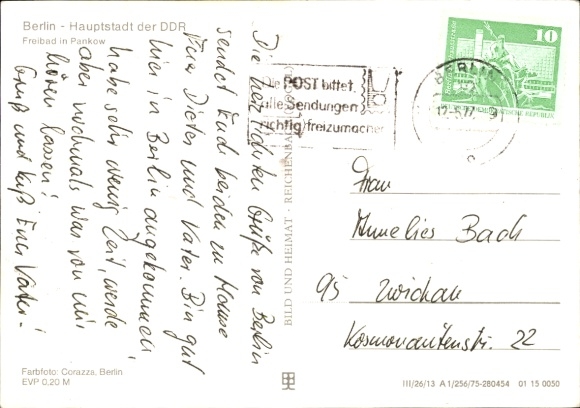 Berlin - Hauptstadt der DDR
Freibad in Pankow
Die herzlichsten Grüße von Berlin
sendet Euch beiden zu Hause
Euer Dieter und Vater. Bin gut
hier in Berlin angekommen,
habe sehr wenig Zeit, werde
aber nochmals was von mir
hören lassen!
Gruß und Kuß Euer Vater!
Die POST bittet,
alle Sendungen
richtig freizumachen
BERLIN
12.-5.77.-9
c
10
DEUTSCHE DEMOKRATISCHE REPUBLIK
BILD UND HEIMAT · REICHENBACH
Frau
Annelies Bach
95 Zwickau
Kosmonautenstr. 22
Farbfoto: Corazza, Berlin
EVP 0,20 M
III/26/13 A 1/256/75-280454 01 15 0050